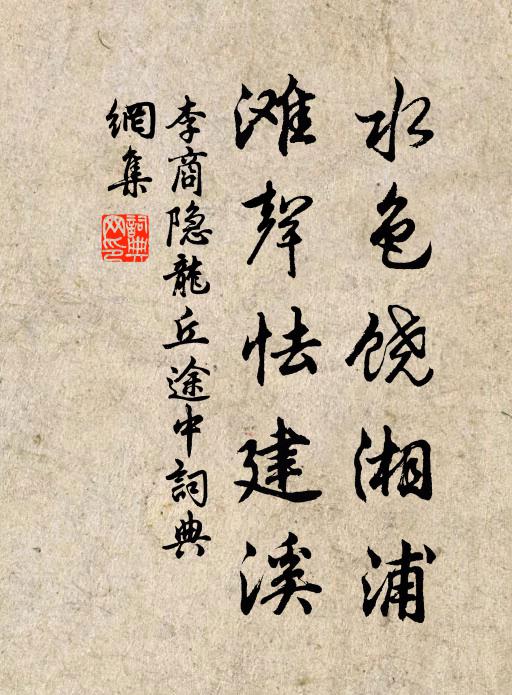 水色饶湘浦
滩聲怯建溪
李商隐龍丘途中詞典
網集
詞典
网印